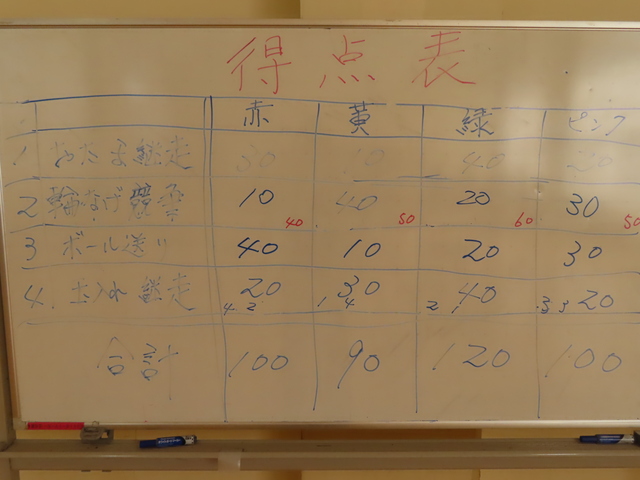 得点表
赤 黄 緑 ピンク
1 おたま継走 30 10 40 20
2 輪なげ競争 10 40 20 30
40 50 60 50
3 ボール送り 40 10 20 30
4. 玉入れ継走 20 30 40 20
4 2 1 4 2 1 3 3
合計 100 90 120 100